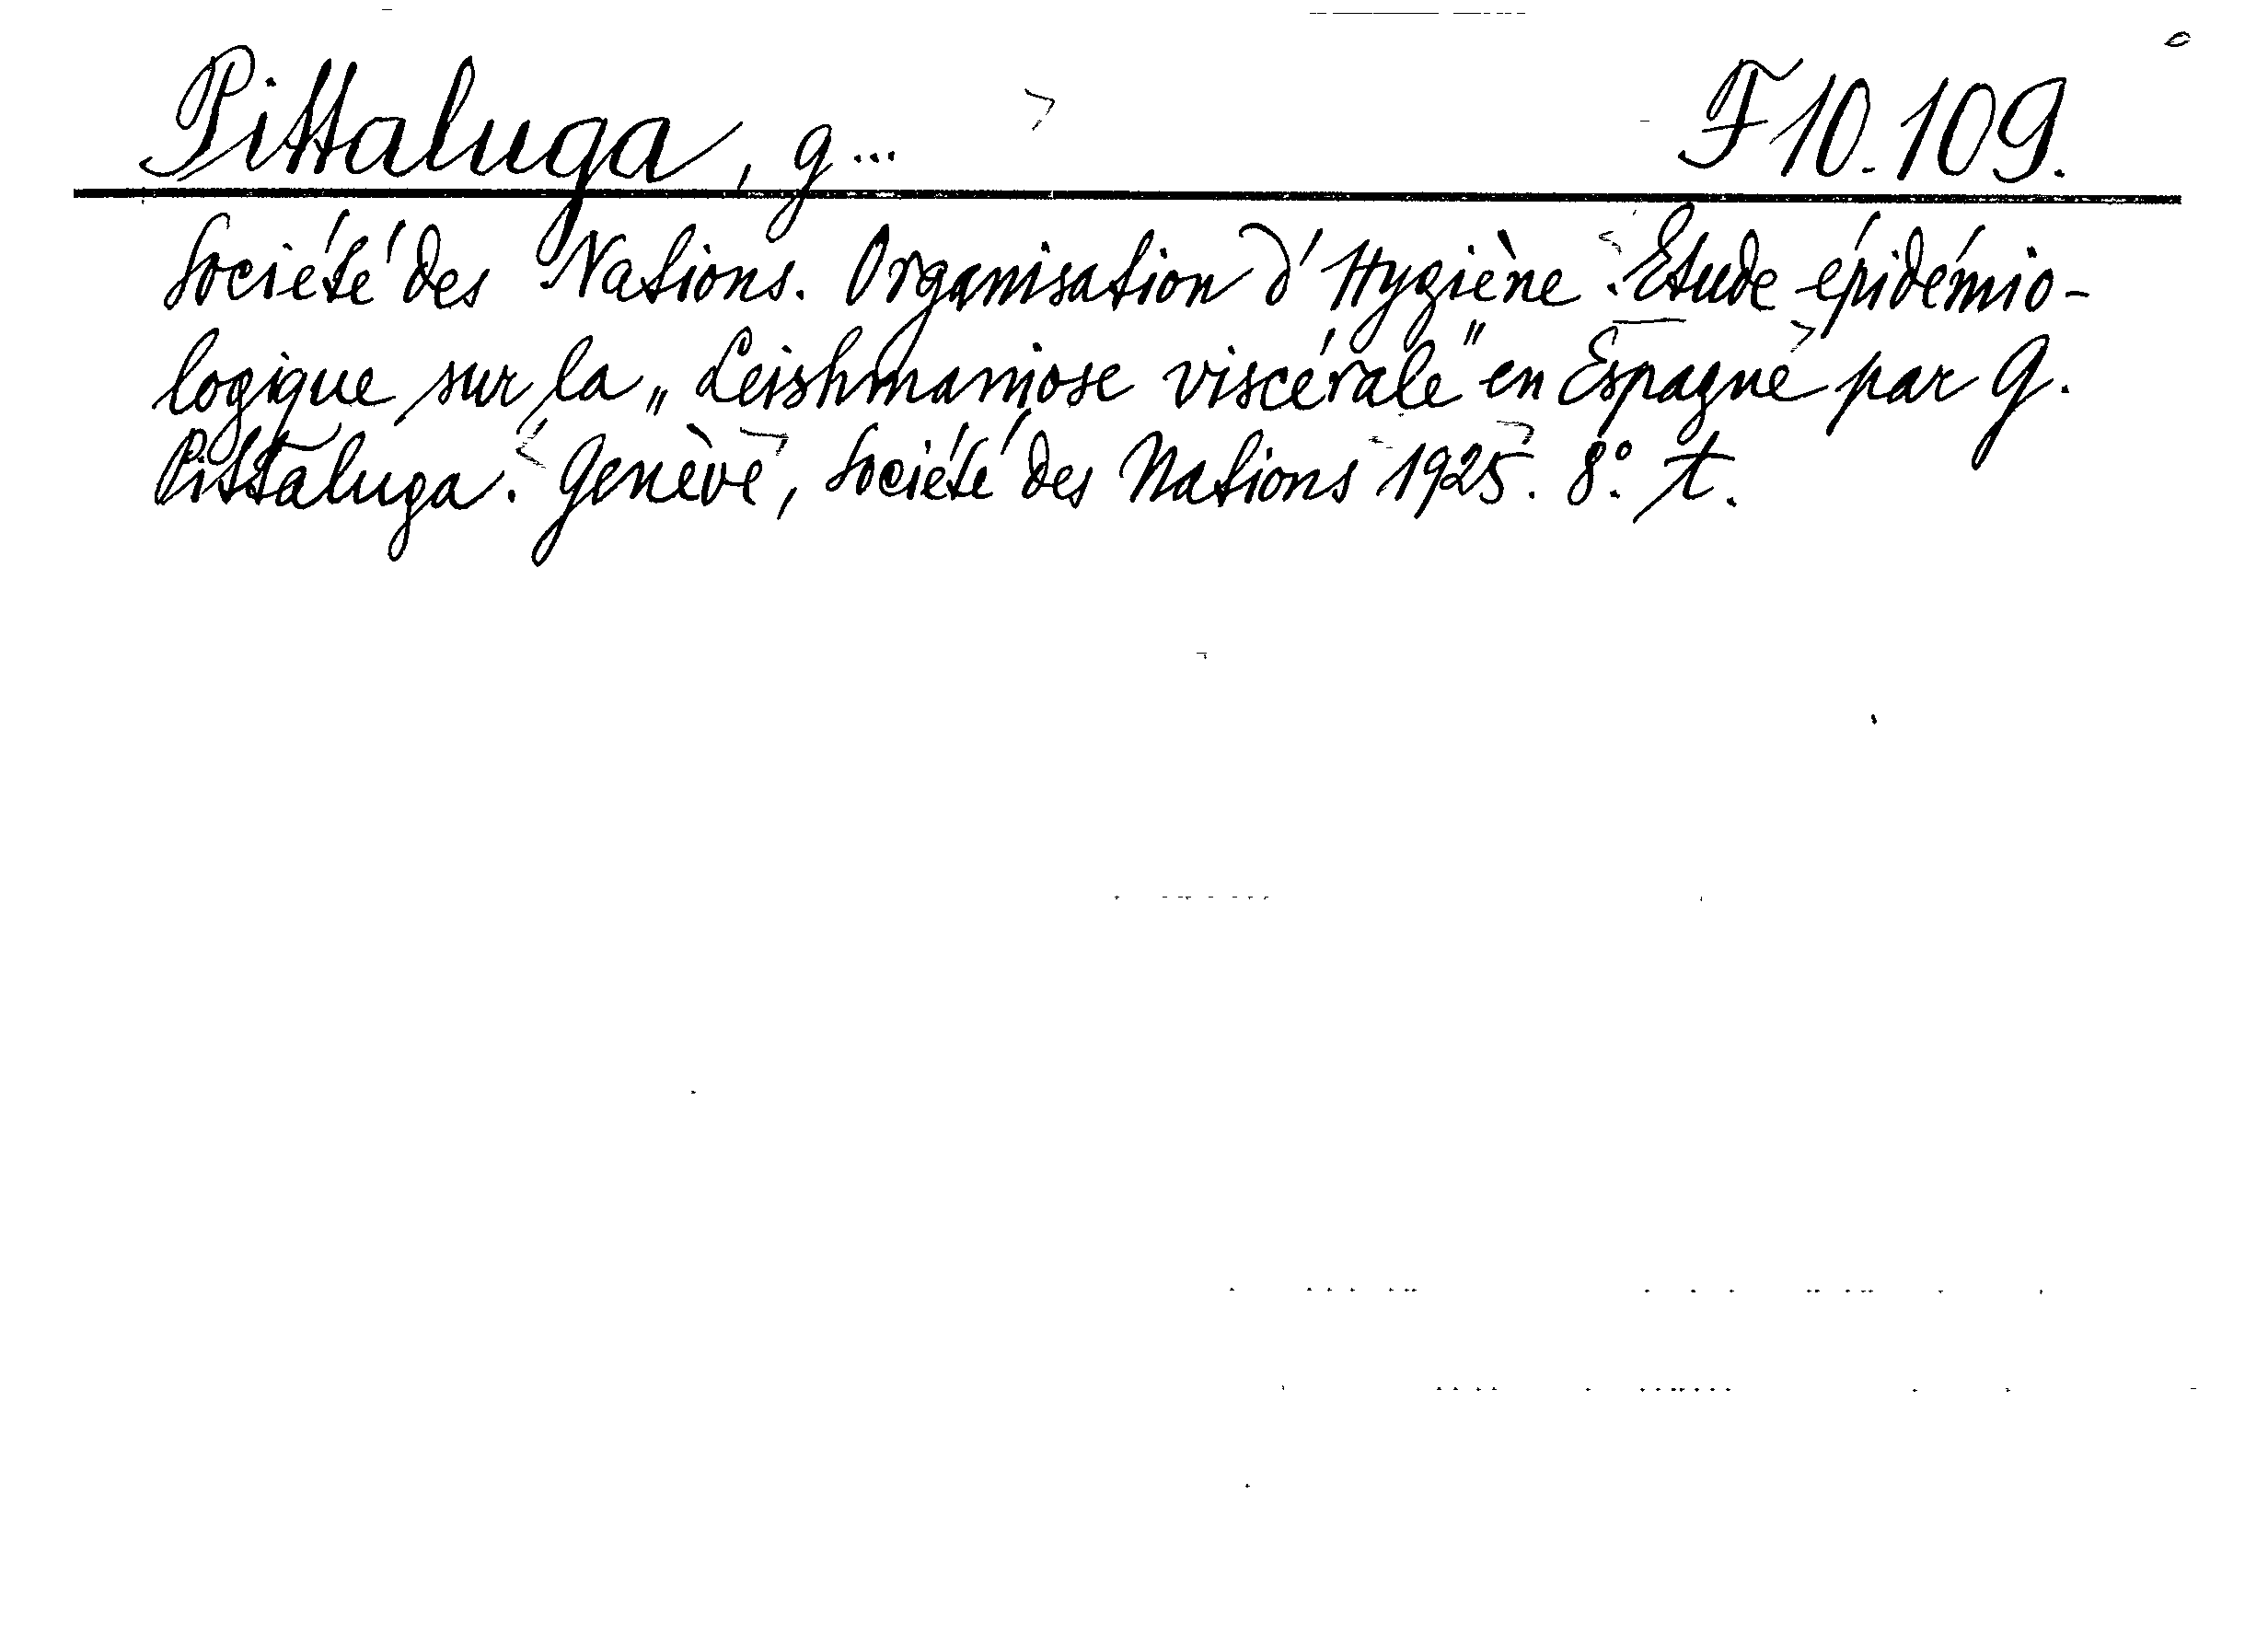 Pittaluga, G... F10.109.
Société des Nations. Organisation d'Hygiène. Etude épidémio-
logique sur la „Leishmaniose viscérale" en Espagne par G.
Pittaluga. Genève, Société des Nations 1925. 8°. T.